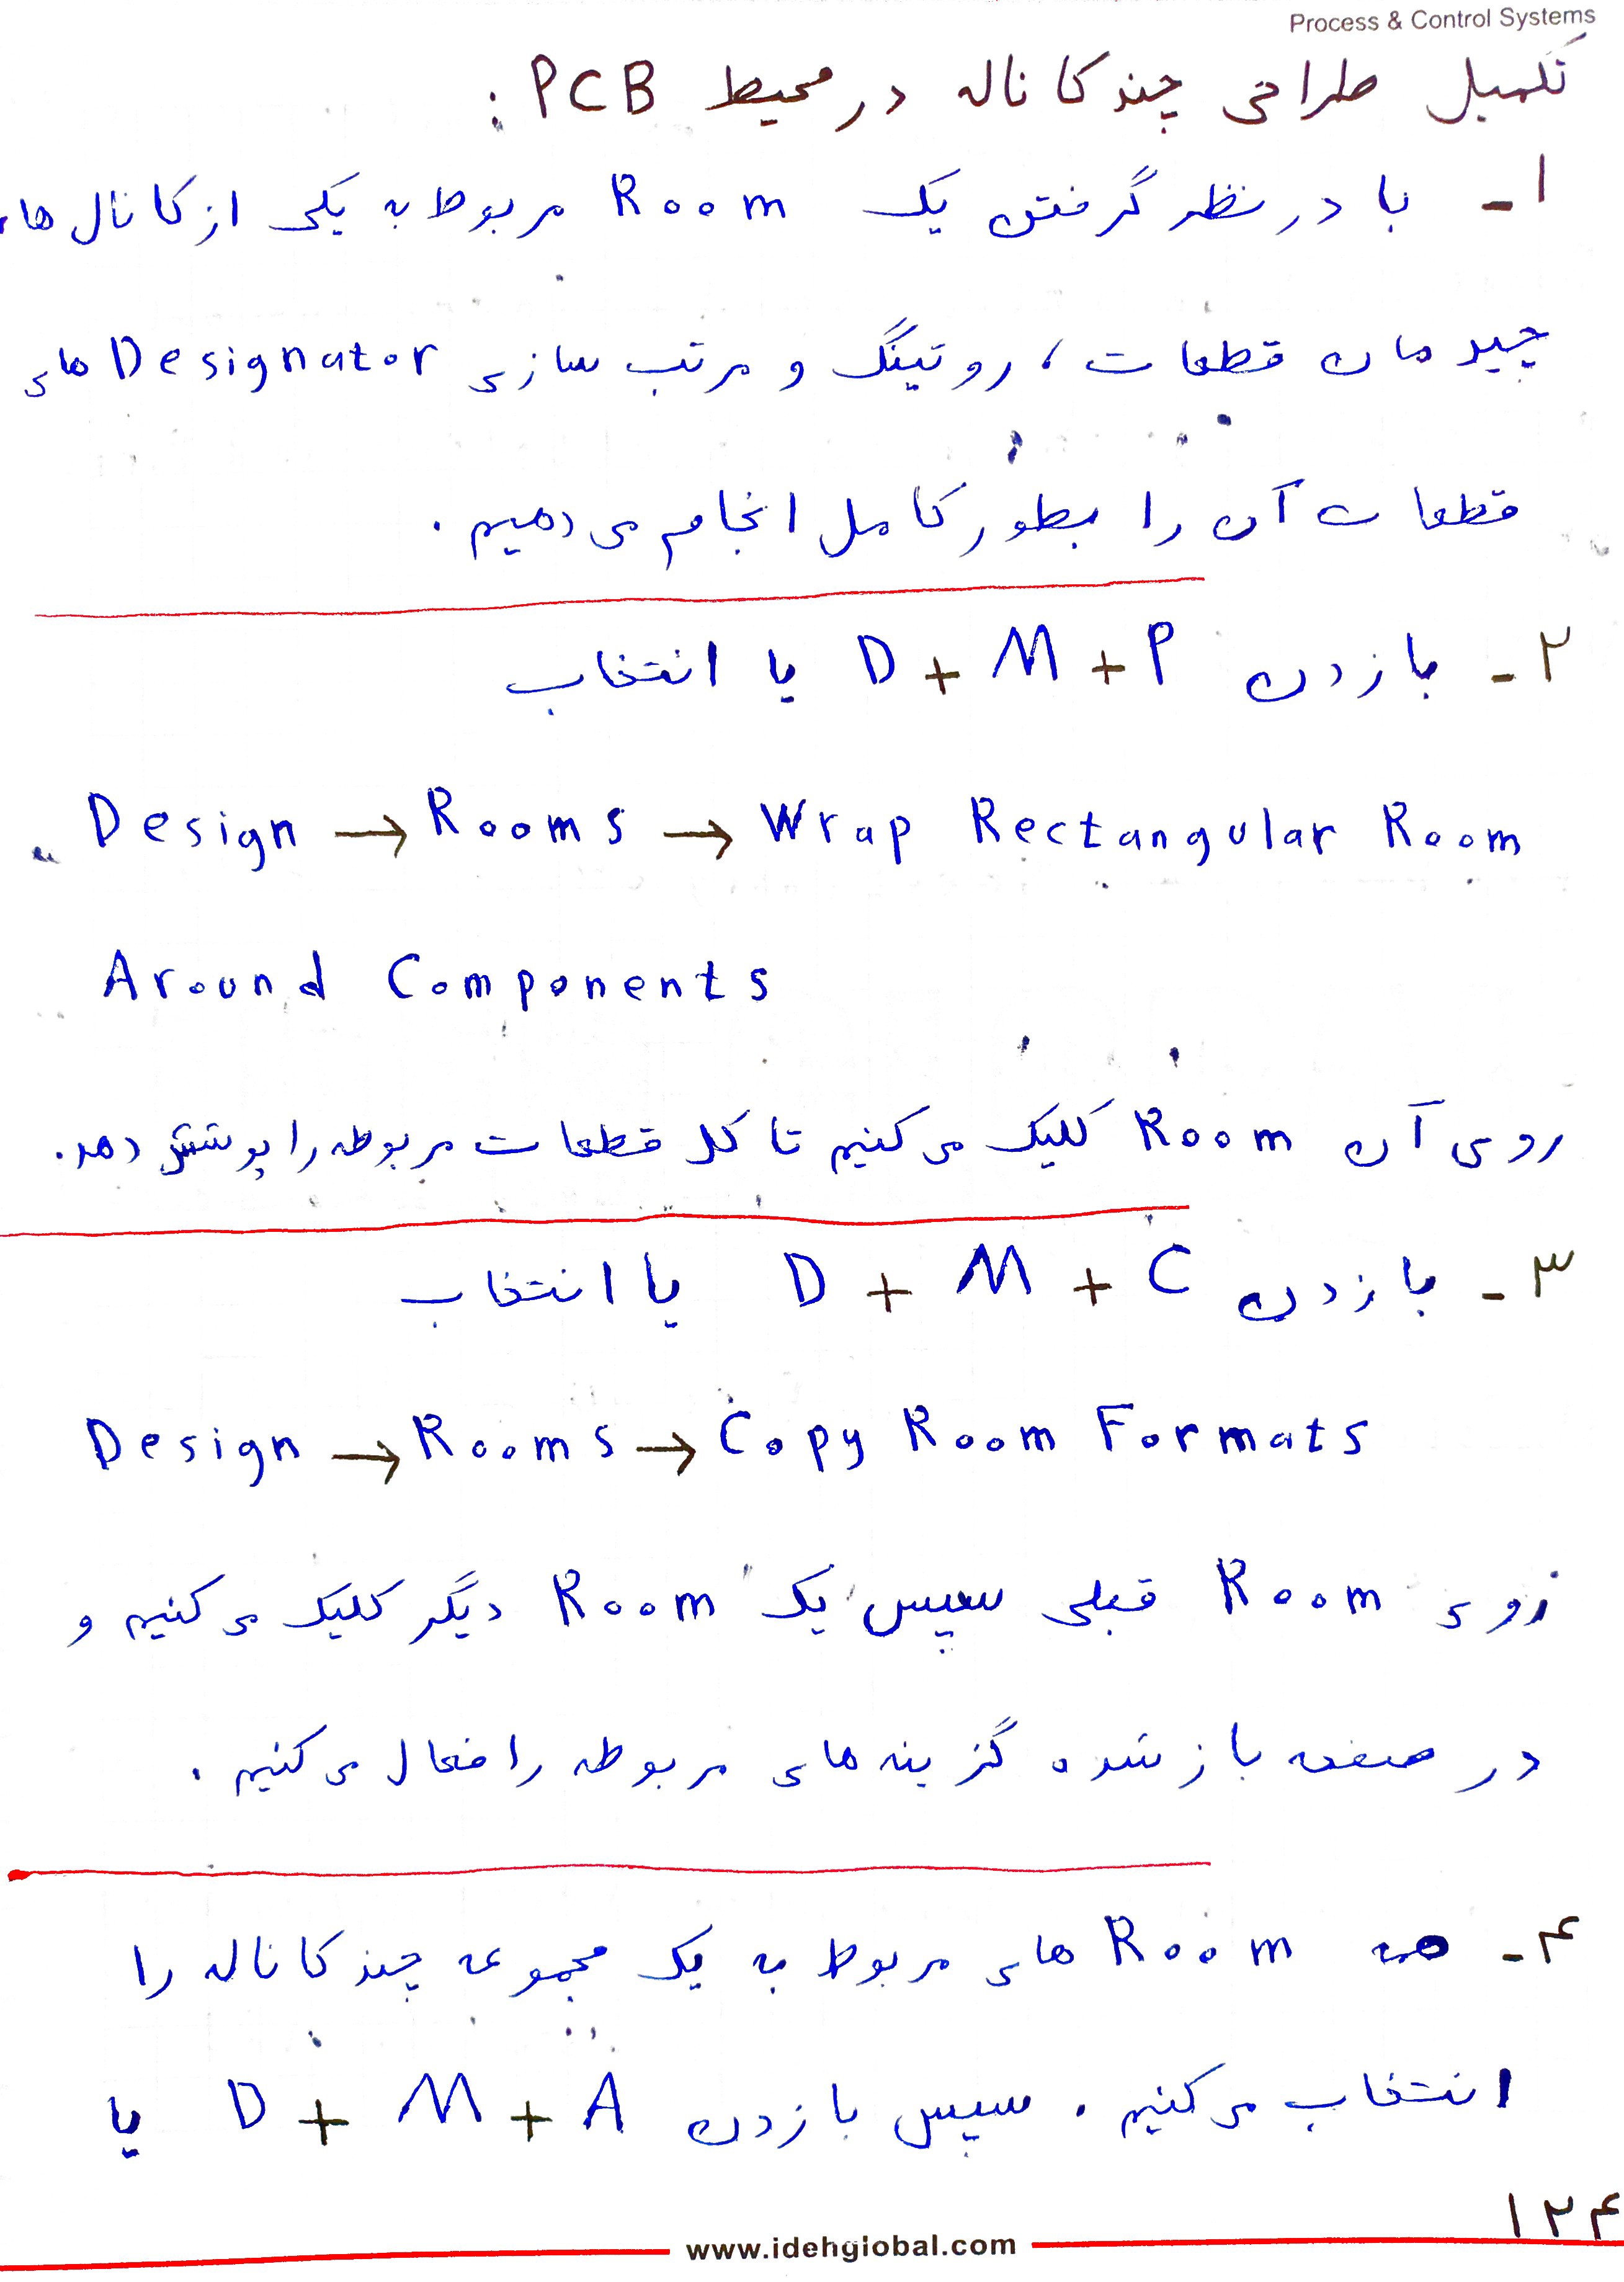 Process & Control Systems
تکمیل طراحی چندکاناله در محیط PCB :
۱- با در نظر گرفتن یک Room مربوط به یکی از کانال ها،
چیدمان قطعات، روتینگ و مرتب سازی Designator های
قطعات آن را بطور کامل انجام می دهیم.
۲- با زدن D + M + P یا انتخاب
Design → Rooms → Wrap Rectangular Room
Around Components
روی آن Room کلیک می کنیم تا کل قطعات مربوطه را پوشش دهد.
۳- با زدن D + M + C یا انتخاب
Design → Rooms → Copy Room Formats
روی Room قبلی سپس یک Room دیگر کلیک می کنیم و
در صفحه باز شده گزینه های مربوطه را فعال می کنیم.
۴- Room های مربوط به یک مجموعه چندکاناله را
انتخاب می کنیم. سپس با زدن D + M + A یا
۱۲۴
www.idehglobal.com